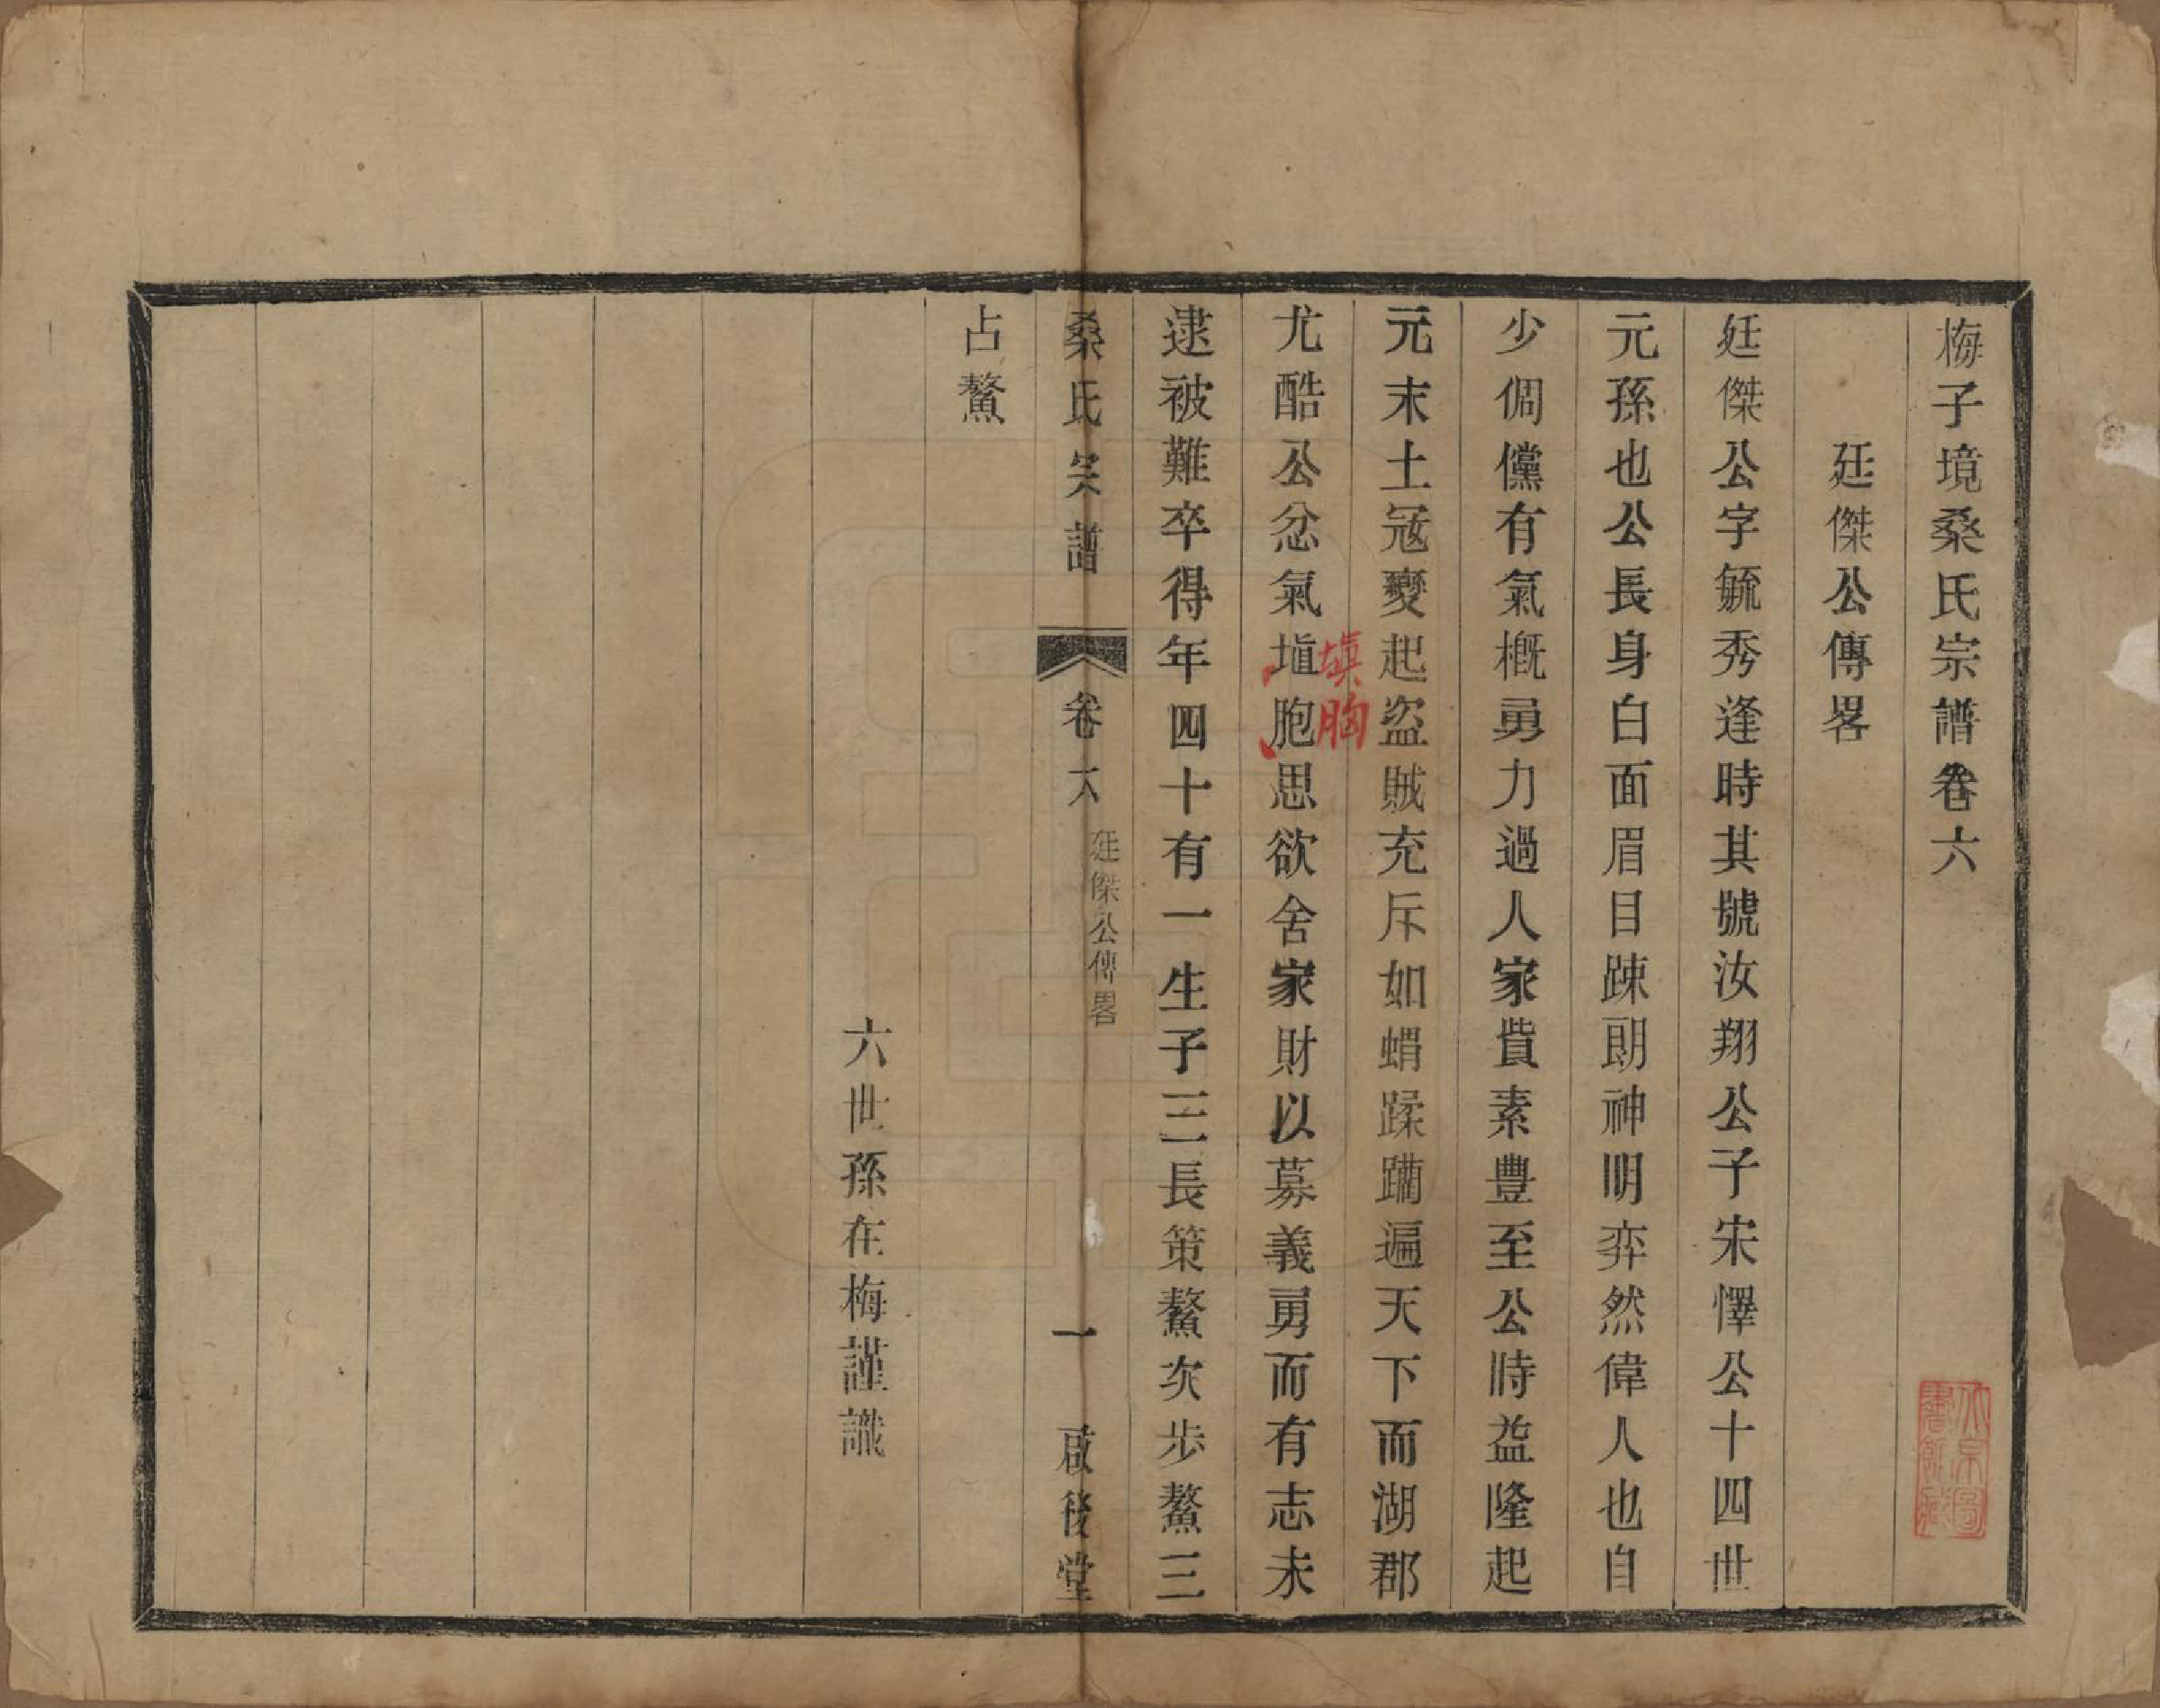 梅子境桑氏宗譜卷六
廷傑公傳畧
廷傑公字毓秀逢時其號汝翔公子宋懌公十四世
元孫也公長身白面眉目踈朗神明弈然偉人也自
少倜儻有氣概勇力過人家貲素豐至公時益隆起
元末土寇變起盜賊充斥如蝟蹂躪遍天下而湖郡
尤酷公忿氣塡胞思欲舍家財以募義勇而有志未
填胸
逮被難卒得年四十有一生子三長策鰲次步鰲三
桑氏宗譜 卷六 廷傑公傳畧 一 啟後堂
占鰲
六世孫在梅謹識